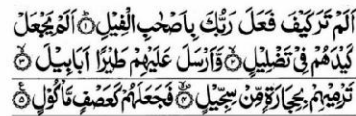 اَلَمْ تَرَ كَيْفَ فَعَلَ رَبُّكَ بِاَصْحٰبِ الْفِيْلِ ۝۱ اَلَمْ يَجْعَلْ
كَيْدَهُمْ فِيْ تَضْلِيْلٍ ۝۲ وَّاَرْسَلَ عَلَيْهِمْ طَيْرًا اَبَابِيْلَ ۝۳
تَرْمِيْهِمْ بِحِجَارَةٍ مِّنْ سِجِّيْلٍ ۝۴ فَجَعَلَهُمْ كَعَصْفٍ مَّاْكُوْلٍ ۝۵